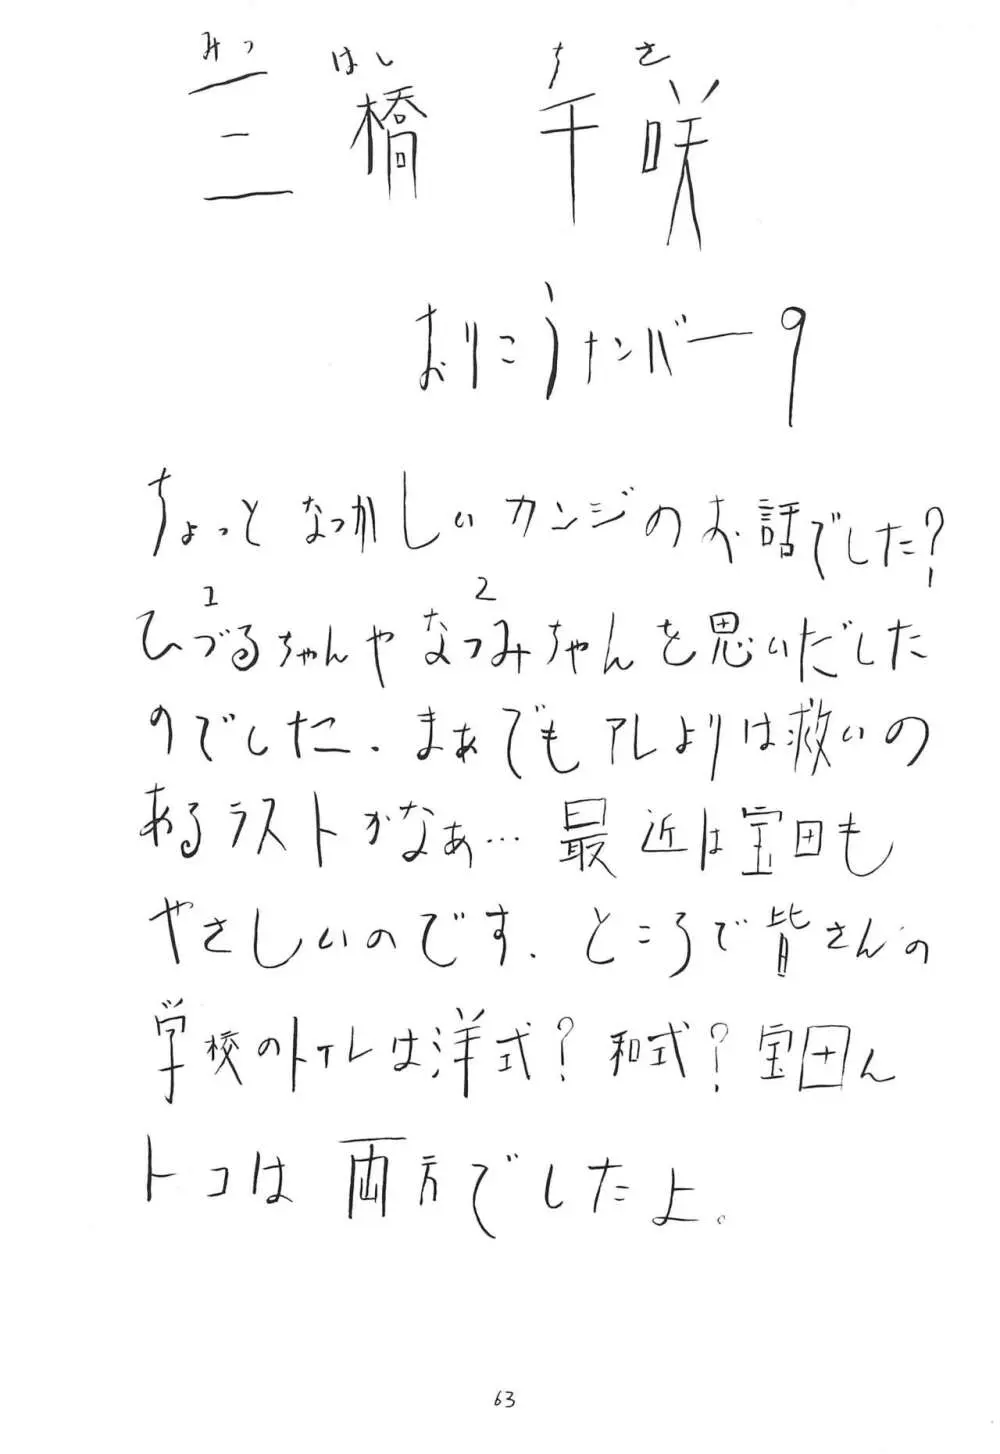 みつ はし ちさ
三橋 千咲
おりこうナンバー9
ちょっとなつかしいカンジのお話でした?
1 2
ひづるちゃんやなつみちゃんを思いだした
のでした.まぁでもアレよりは救いの
あるラストかなぁ…最近は宝田も
やさしいのです.ところで皆さんの
学校のトイレは洋式?和式?宝田ん
トコは両方でしたよ。
63